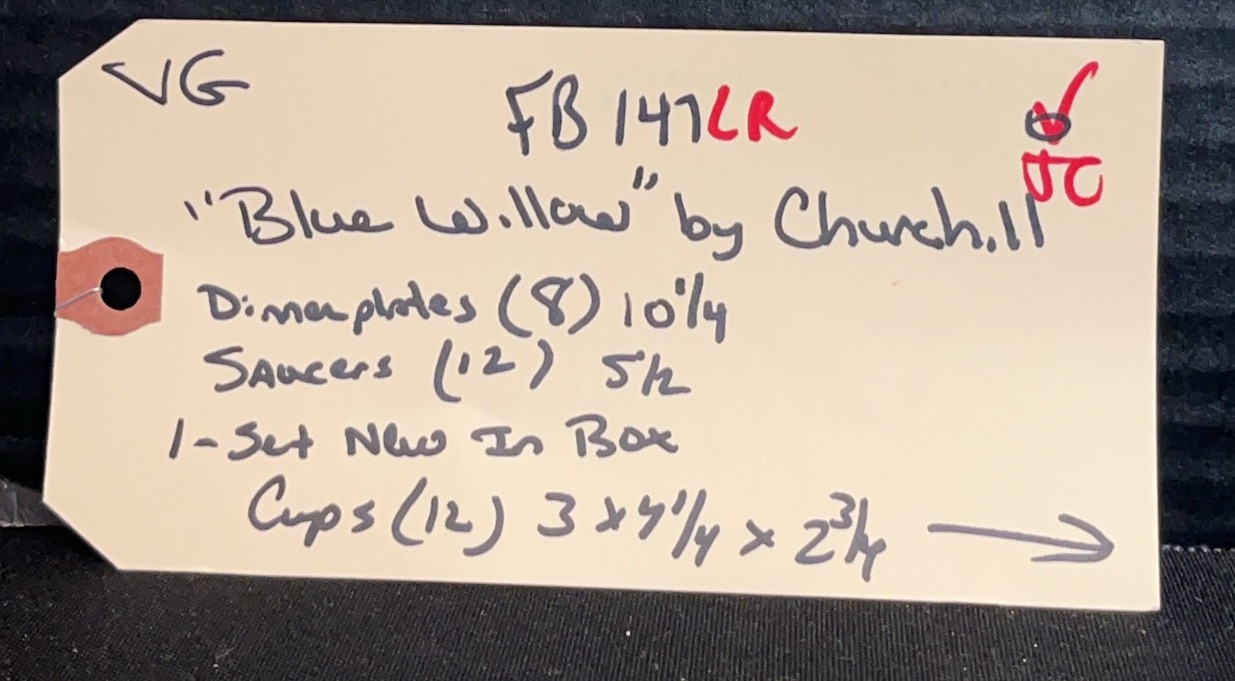 VG
FB 147LR
JC
"Blue Willow" by Churchill
Dinnerplates (8) 10 1/4
Saucers (12) 5 1/2
1-Set New In Box
Cups (12) 3 x 4 1/4 x 2 3/4 →